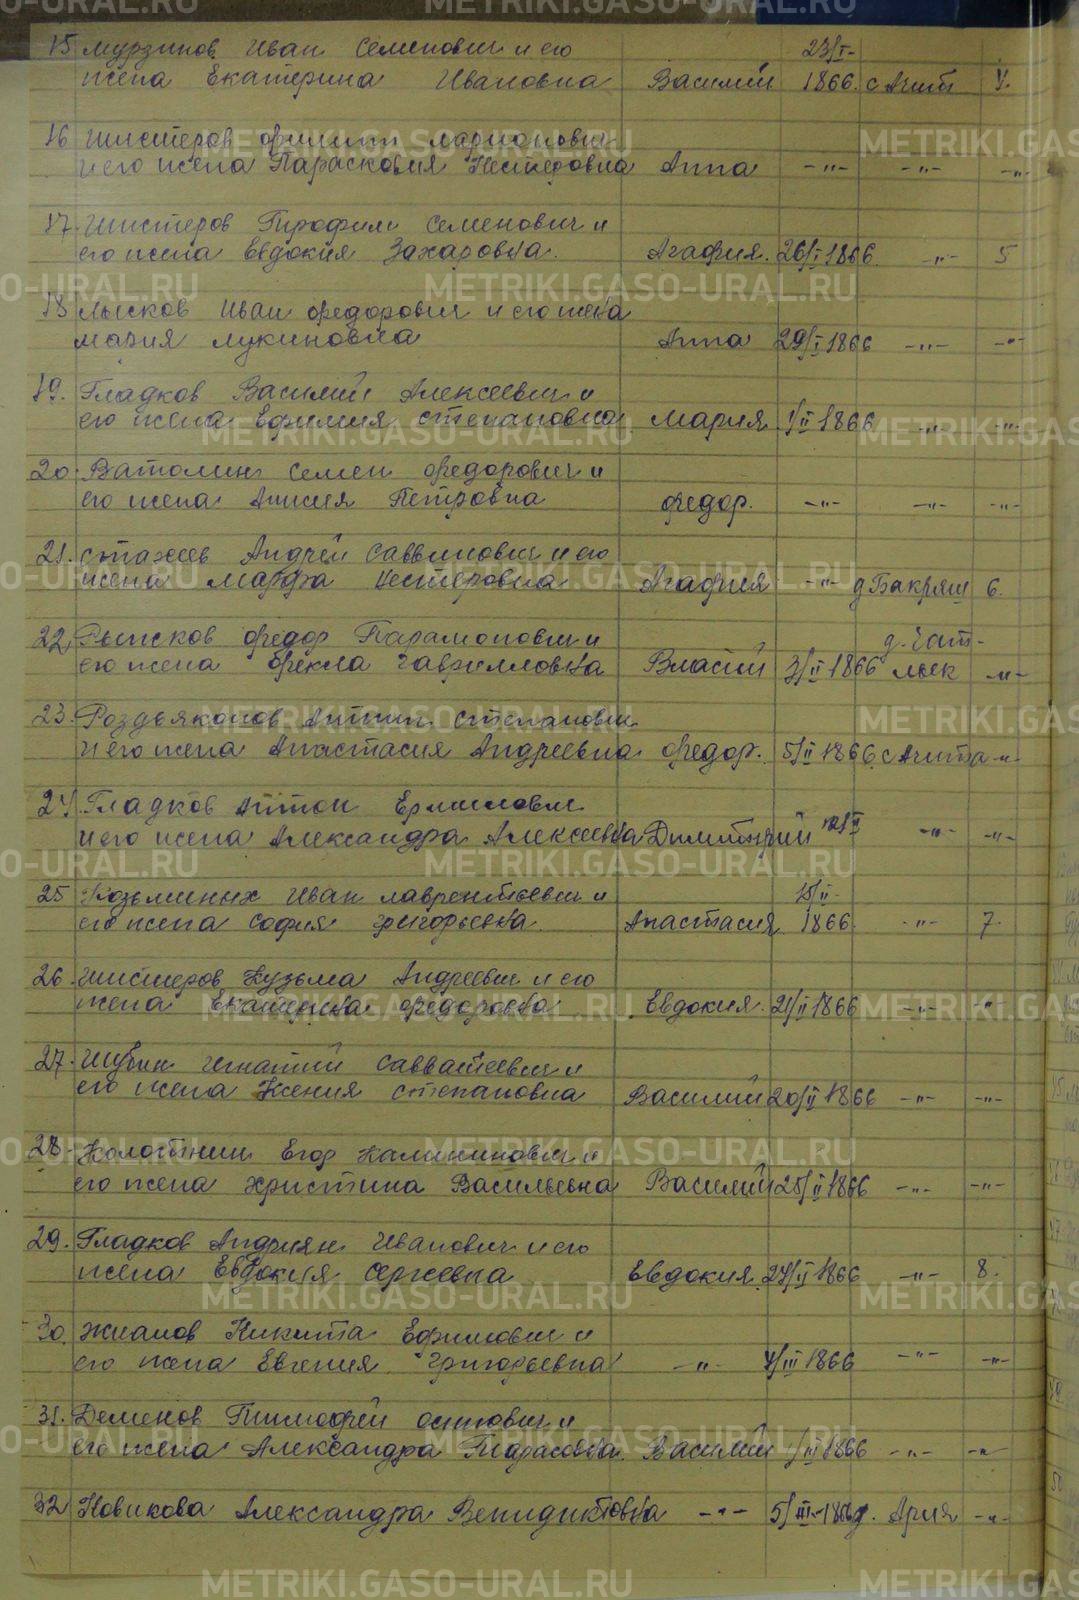 15 Мурзинов Иван Семенович и его 23/I-
жена Екатерина Ивановна Василий 1866. с Ачит 4.
16 Шистеров Филипп Марионович
и его жена Парасковия Нестеровна Анна -"- -"- -"-
17. Шистеров Трофим Семенович и
его жена Евдокия Захаровна. Агафия. 26/I 1866 -"- 5
18 Лысков Иван Федорович и его жена
Мария Лукиновна Анна 29/I 1866 -"- -"-
19. Гладков Василий Алексеевич и
его жена Ефимия Степановна Мария 1/II 1866 -"- -"-
20. Ватолин Семен Федорович и
его жена Анисия Петровна Федор. -"- -"- -"-
21. Стахеев Андрей Саввинович и его
жена Марфа Нестеровна Агафия -"- д Бакряш 6.
22 Рыжков Федор Парамонович и д. Чат-
его жена Фекла Гаврилловна Власий 3/II 1866 лык -"-
23. Роздьяконов Антип Степанович
и его жена Анастасия Андреевна Федор. 5/II 1866 с Ачита -"-
24. Гладков Антон Ермилович
и его жена Александра Алексеевна Димитрий 12/II -"- -"-
25 Козьминых Иван Лаврентьевич и 15/II-
его жена София Григорьевна Анастасия 1866. -"- 7.
26. Шистеров Кузьма Андреевич и его
жена Екатерина Федоровна Евдокия. 21/II 1866 -"- -"-
27. Шубин Игнатий Савватеевич и
его жена Ксения Степановна Василий 20/II 1866 -"- -"-
28. Колотнин Егор Калининович и
его жена Христина Васильевна Василий 25/II 1866 -"- -"-
29. Гладков Андриян Иванович и его
жена Евдокия Сергеевна Евдокия. 27/II 1866 -"- 8.
30. Жианов Никита Ефимович и
его жена Евгения Григорьевна -"- 4/III 1866 -"- -"-
31. Деменов Тимофей Осипович и
его жена Александра Тарасовна. Василий 1/III 1866 -"- -"-
32 Новикова Александра Венидиктовна -"- 5/III-1866 д. Ария -"-
METRIKI.GASO-URAL.RU